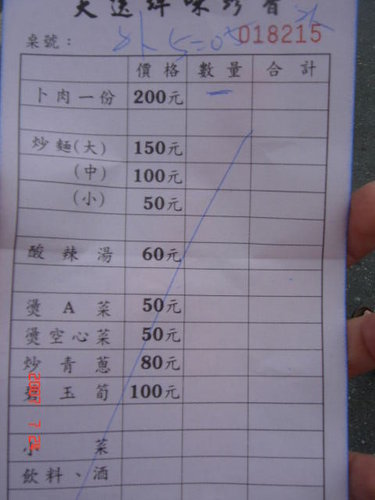 桌號： 018215
價格 數量 合計
卜肉一份 200元 一
炒麵(大) 150元
(中) 100元
(小) 50元
酸辣湯 60元
燙A菜 50元
燙空心菜 50元
炒青蔥 80元
玉筍 100元
小菜
飲料、酒
2007 7 2